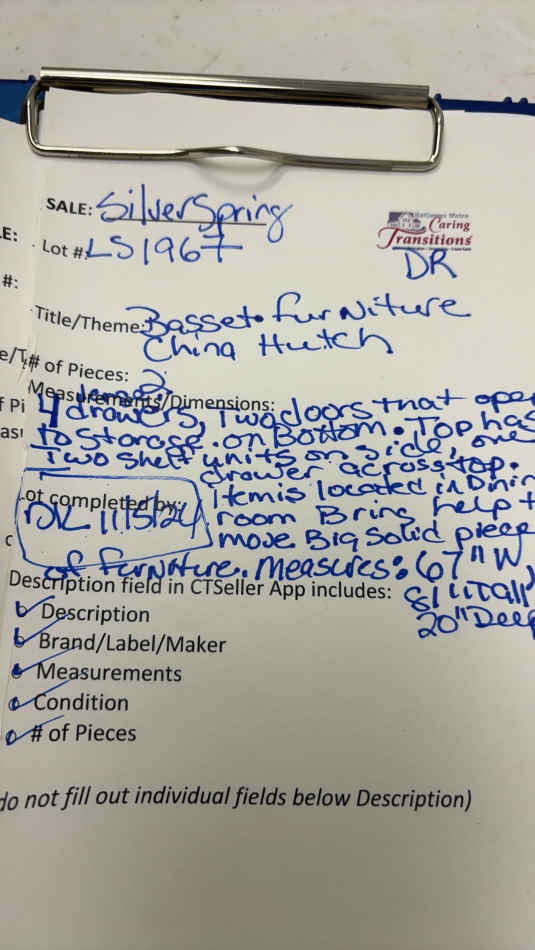 SALE: SilverSpring
Baltimore Metro
Caring
Transitions
E:
Lot #: LS1967
DR
#:
Title/Theme: Basset Furniture
China Hutch
e/T
# of Pieces: 2
Measurements/Dimensions:
f Pi
4 drawers, Two doors that ope
to storage on Bottom. Top has
Two shelf units on side, one
drawer across top.
Lot completed by:
Item is located in Dinin
DR 11/15/24
room Bring help t
move Big Solid piece
of furniture. Measures: 67" W,
Description field in CTSeller App includes:
81" Tall
20" Deep
Description
Brand/Label/Maker
Measurements
Condition
# of Pieces
do not fill out individual fields below Description)